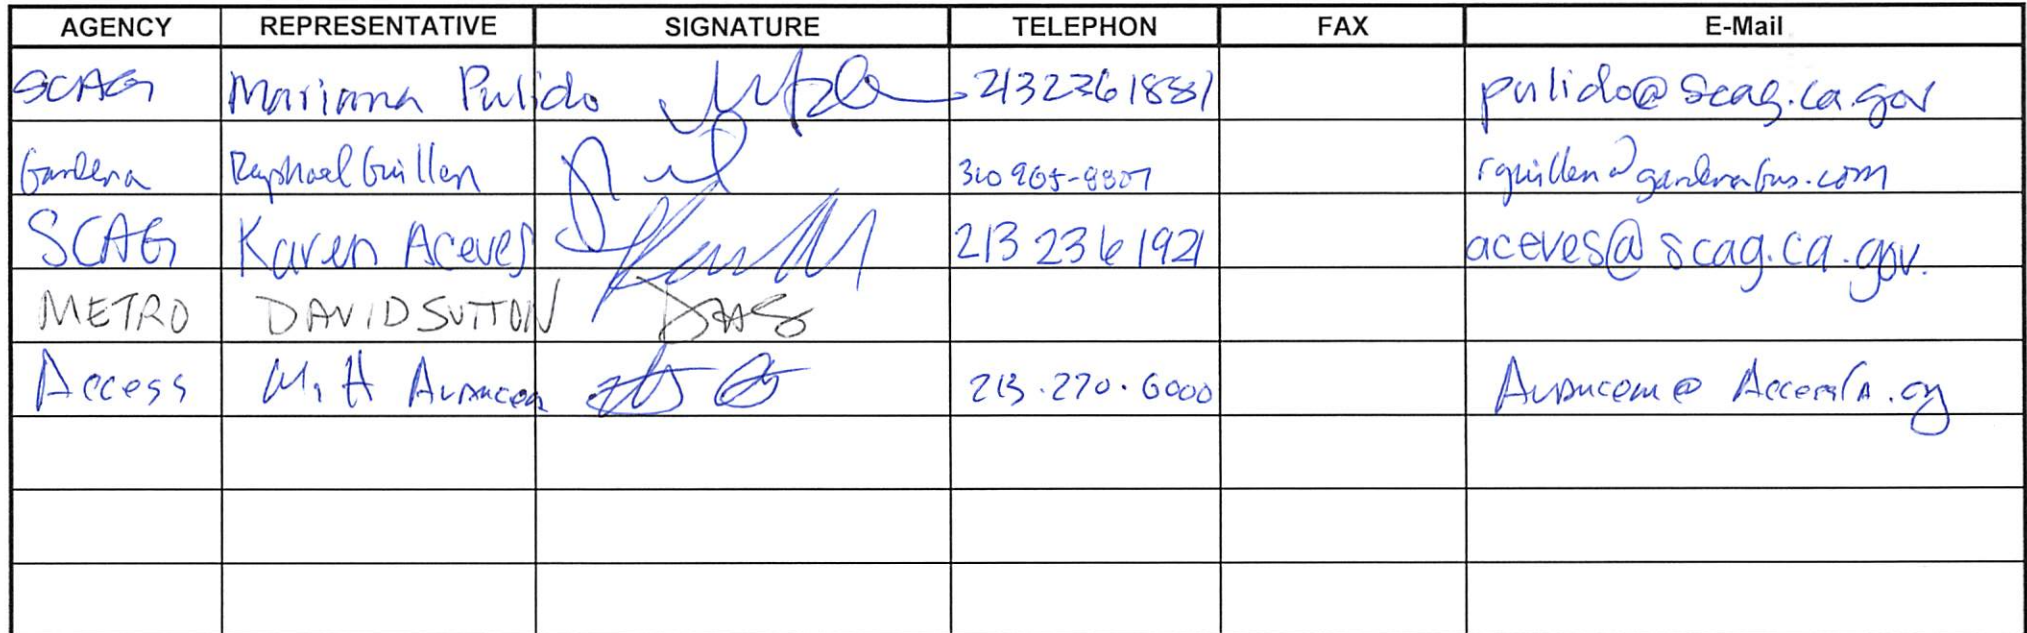 AGENCY REPRESENTATIVE SIGNATURE TELEPHON FAX E-Mail
SCAG Mariana Pulido 2132361881 pulido@scag.ca.gov
Gardena Raphael Guillen rguillen@gardenabus.com
SCAG Karen Aceves 213 236 1921 aceves@scag.ca.gov.
METRO DAVID SUTTON
Access 213.270.6000